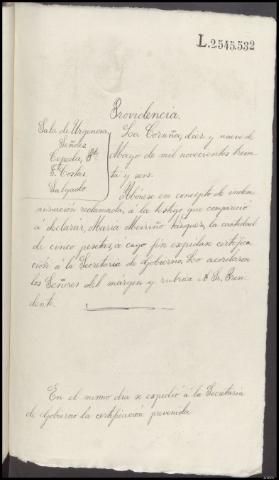 L.2545.532
Providencia.
Sala de Urgencia
Señores
Cepeda, Pte
Costas
Salgado
La Coruña, diez y nueve de
Mayo de mil novecientos trein-
ta y seis.
Abónese en concepto de indem-
nización reclamada, á la testigo que compareció
á declarar, María Meiriño Vázquez, la cantidad
de cinco pesetas, a cuyo fin expídase certifica-
ción á la Secretaría de Gobierno. Lo acordaron
los Señores del márgen y rubrica el Sr. Presi-
dente.
En el mismo día se expidió á la Secretaría
de Gobierno la certificación prevenida